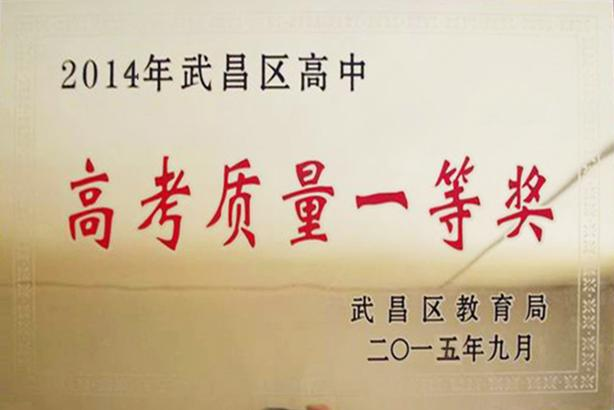 2014年武昌区高中
高考质量一等奖
武昌区教育局
二〇一五年九月